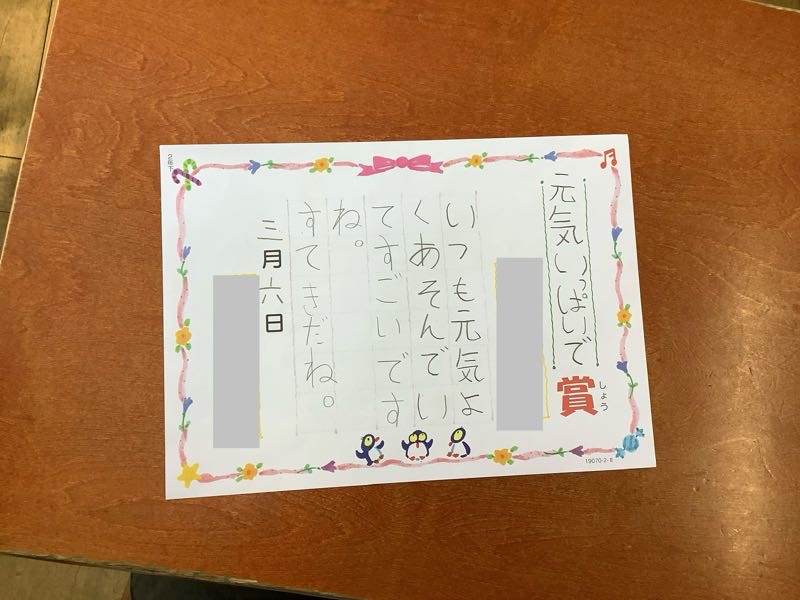 元気いっぱいで
賞
しょう
いつも元気よ
くあそんでい
てすごいです
ね。
すてきだね。
三月六日
2年下
19070-2-8